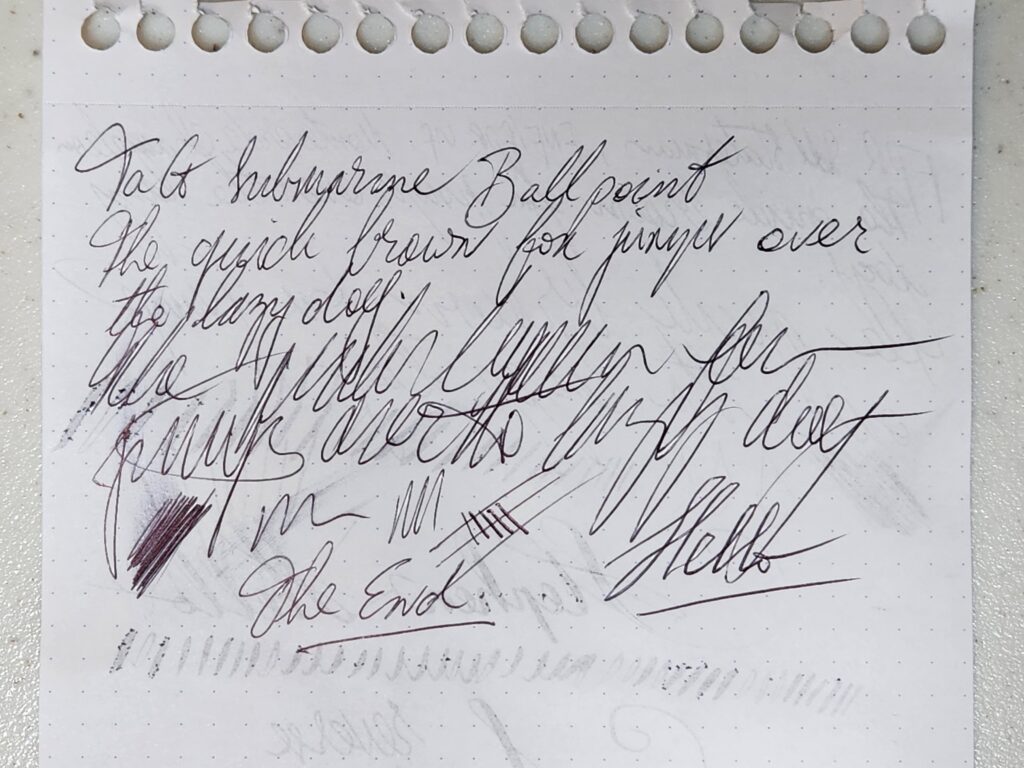 TaG Submarine Ballpoint
The quick brown fox jumps over
the lazy dog.
the quick brown fox
jumps over the lazy dog
m m
Hello
The End